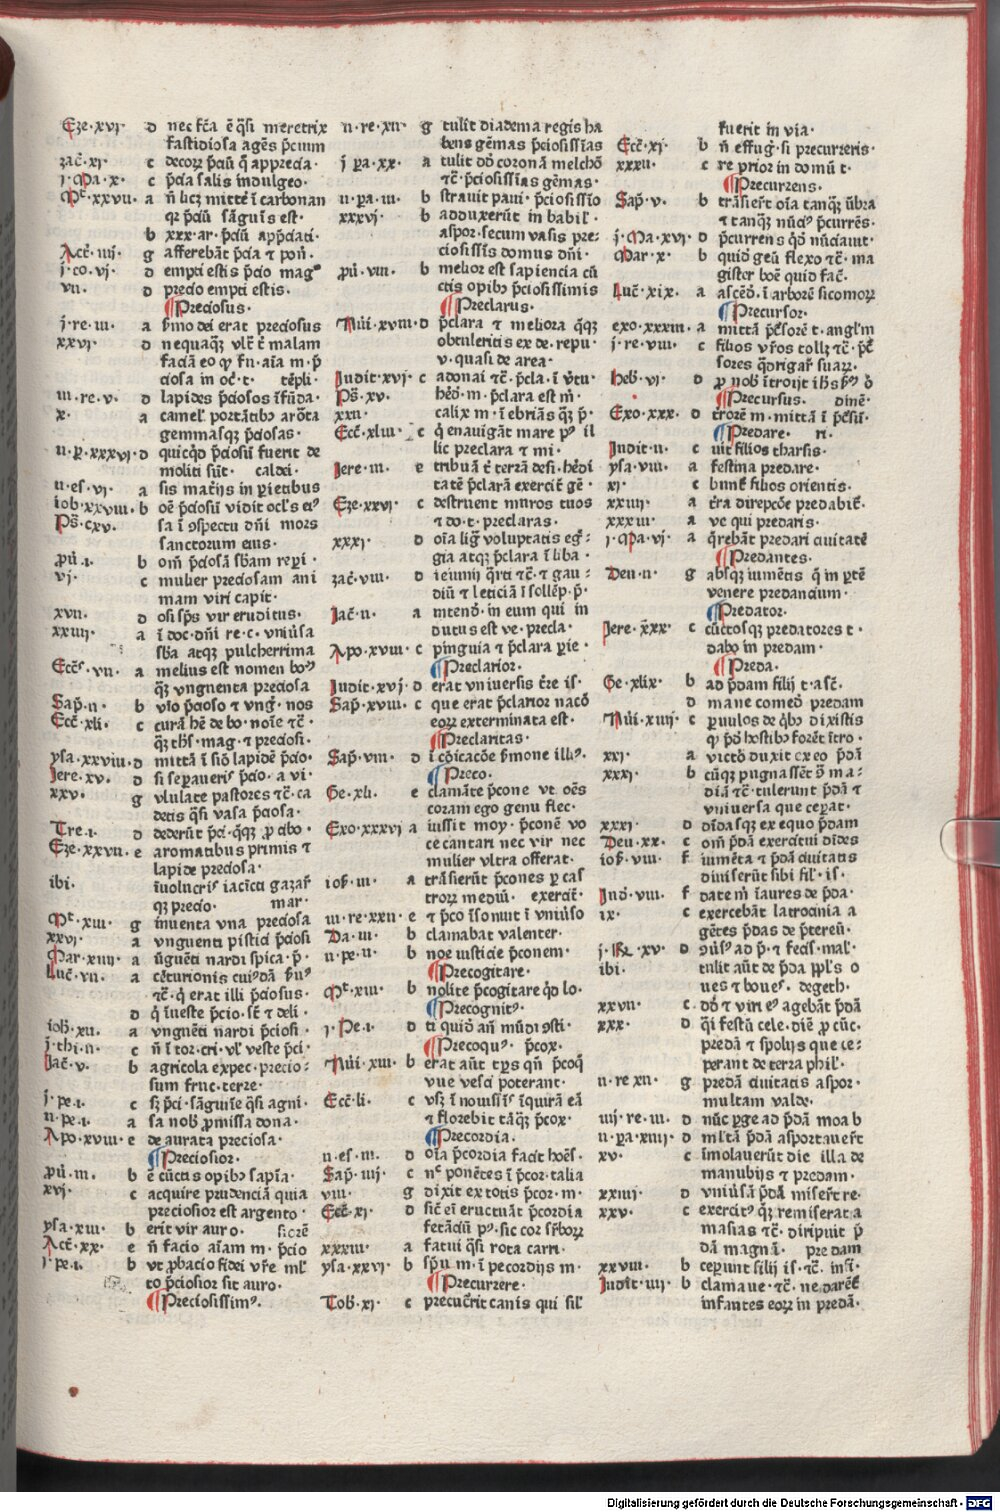 Eze·xvj· d nec fc̄a ē q̄si meretrix
fastidiosa agēs p̄cium
zac̄·xj· c decorꝝ p̄ciū q̄ appreciā·
j·Ma·x· c p̄cia salis indulgeo·
Mt̄·xxvii· a n̄ licꝫ mitte ī carbonan
qꝛ p̄ciū sāguīs est·
b xxx·ar·p̄ciū app̄ciati·
Act̄·iiij· g afferebāt p̄cia ⁊ pon̄·
j·co·vj· d empti estis p̄cio mag°
vii· d precio empti estis·
¶Preciosus·
j·re·iii· a s̄mo dei erat preciosus
xxvj· d nequaqꝫ vlt̄ t̄ malam
faciā eo ꝙ fn̄·aīa m·p̄
ciosa in oc̄·t· tēpli·
iii·re·v· d lapides p̄ciosos ī fūda·
x· a camel' portātibꝰ arōta
gemmasqꝫ p̄ciosas·
ii·ꝑ·xxxvj·d quicqd p̄ciosū fuerit de
moliti sūt· caldei·
ii·es·vj· a sis mat̄ijs in ꝑietibus
iob·xxviii·b oē p̄ciosū vidit ocl's eiꝰ
Ps̄·cxv· sa ī ↄspectu dn̄i mors
sanctorum eius·
ꝓu̇·i· b om̄ p̄ciosā sb̄am reꝑi·
vj· c mulier preciosam ani
mam viri capit·
xvii· d osi sp̄s vir eruditus·
xxiiij· a ī doc·dn̄i re·c·vniūsa
sb̄a atqꝫ pulcherrima
Ecc̄s·vii· a melius est nomen boꝰ
qꝫ vnguenta preciosa
Sap̄·ii· b vīo p̄cioso ⁊ vnḡ·nos
Ecc̄·xli· c curā hē de bo·noīe ⁊c̄·
qꝫ thſ·mag·⁊ preciosi·
ysa·xxviii·d mittā ī siō lapidē p̄cio·
Jere·xv· d si seꝑaueris p̄cio·a vi·
xxv· g vlulate pastores ⁊c̄·ca
detis q̄si vasa p̄ciosa·
Tre·i· d dederūt p̄ci·q̄qꝫ ꝓ cibo·
Eze·xxvii·e aromatibus primis ⁊
lapide preciosa·
ibi· īuolucrꝭ iacīcti gazaꝝ
qꝫ precio· mar·
Mt̄·xiii· g inuenta vna preciosa
xxvj· a vnguenti pistici p̄ciosi
Mar·xiiij· a ūguēti nardi spica·p̄·
Luc̄·vii· a cēturionis cuiꝰdā ẜuꝰ
⁊c̄·q̄ erat illi p̄ciosus·
d q̄ ī ueste p̄cio·st̄ ⁊ deli·
ioh̄·xii· a vnguēti nardi p̄ciosi·
j·thi·ii· c n̄ ī tor·cri·vl' veste p̄ci·
Jac̄·v· b agricola expec·precio-
sum fruc·terre·
j·pe·i· c sꝫ p̄ci·sāguīe q̄si agni·
ii·pe·i· a sa nob̄ ꝓmissa dona·
Apo·xviii·e deaurata preciosa·
¶Preciosior·
ꝓu̇·iii· b ē cūctis opibꝰ sapīa·
xvj· c acquire prudenciā quia
preciosior est argento·
ysa·xiii· b erit vir auro· sicrē
Act̄·xx· e n̄ facio aīam m·p̄cio
j·pe·i· b vt ꝓbacio fidei vr̄e ml'
to p̄ciosior sit auro·
¶Preciosissimꝰ·
ii·re·xii· g tulit diadema regis ha
bens gēmas p̄ciosissīas
j pa·xx· a tulit dd̄ coronā melchō
⁊c̄·p̄ciosissīas gēmas·
ii·pa·iii· b strauit paui·p̄ciosissīo
xxxvj· b adduxerūt in babil'·
aspor·secum vasis pre-
ciosissīs domus dn̄i·
ꝓu̇·viii· b melior est sapiencia cū
ctis opibꝰ p̄ciosissimis
¶Preclarus·
Nūi·xviii·d p̄clara ⁊ meliora q̄qꝫ
obtuleritis ex de·repu·
v·quasi de area·
Judit·xvj· c adonai ⁊c̄·p̄cla·ī v̄tu·
Ps̄·xv· hēd·m·p̄clara est m̄·
xxii· calix m·īebriās qꝫ p̄·
Ecc̄·xliii· c q̄ enauigāt mare pꝰ il
lic preclara ⁊ mi·
Jere·iii· e tribuā t̄ terrā desi·hēdi
tatē p̄clarā exercit̄ gē·
Eze·xxvj· c destruent muros tuos
⁊ do·t·preclaras·
xxxj· d oīa liḡ voluptatis eḡ-
gia atqꝫ p̄clara ī liba·
zac̄·viii· d ieiunij q̄rti ⁊c̄·⁊ gau-
diū ⁊ leticiā ī sollēp·p̄·
Jac̄·ii· a intend̄·in eum qui in
dutus est ve·precla·
Apo·xviii·c pinguia ⁊ p̄clara ꝑie·
¶Preclarior·
Judit·xvj·d erat vniuersis t̄re is'·
Sap̄·xviii·c que erat p̄clarior nacō
eoꝝ exterminata est·
¶Preclaritas·
Sap̄·viii· d ī cōicacōe ẜmone illiꝰ·
¶Preco·
Ge·xli· e clamāte p̄cone vt oēs
coram ego genu flec·
Exo·xxxvj a iussit moy·p̄conē vo
ce cantari nec vir nec
mulier vltra offerat·
ios̄·iii· a trāsierūt p̄cones ꝑ cas
troꝝ mediū· exercit̄·
iii·re·xxii·e ⁊ p̄co īsonuit ī vniūso
Da·iii· b clamabat valenter·
ii·pe·ii· b noe iusticie p̄conem·
¶Precogitare·
Mt̄·xiii· b nolite p̄cogitare qd̄ lo·
¶Precognitꝰ·
j·Pe·i· d ti quid ān mūdi ↄsti·
¶Precoquꝰ· p̄cox·
Nūi·xiii· b erat aūt tp̄s qn̄ p̄coq̄
vue vesci poterant·
Ecc̄·li· c vsꝫ ī nouissīs īquirā eā
⁊ florebit tāqꝫ p̄cox·
¶Precordia·
ii·es·iii· d oīa p̄cordia facit hoēs'·
Sap̄·iiij· c nᶜ ponētes ī p̄cor·talia
viii· g dixit ex totis p̄cor·m·
Ecc̄·xj· d sic̄ ei eructuāt p̄cordia
fetādiū pꝰ·sic cor sꝑboꝝ
xxxiii· a fatui q̄si rota carri·
ysa·xxvj· b sp̄u m·ī pecordijs m·
¶Precurrere·
Tob̄·xj· c precuc̄rit canis qui sil'
fuerit in via·
Ecc̄·xj· b n̄ effug̅·si precurreris·
xxxii· c re prior in domū t·
¶Precurrens·
Sap̄·v· b trāsiert̄ oīa tanqꝫ ūbra
⁊ tanqꝫ nūciꝰ p̄currēs·
j·Ma·xvj· d p̄currens qd̄ nūciauit·
Mar·x· b quid̄ geū flexo ⁊c̄·ma
gister boē quid fac̄·
Luc̄·xix· a ascēd̄·ī arborē sicomoꝝ
¶Precursor·
exo·xxxiii·a mittā p̄c̄sorē t·angl'm
j·re·viii· c filios vr̄os tollꝫ ⁊c̄·p̄c̄
sores q̄drigaꝝ suaꝝ·
Heb̄·vj· d ꝓ nob̄ ītroijt ih̄s ẜꝰ ō
¶Precursus· dinē·
Exo·xxx· d t̄rorē m·mittā ī p̄c̄sū·
¶Predare· ri·
Judit·ii· c uit filios tharsis·
ysa·viii· a festina predare·
xj· c bunt̄ filios orientis·
xxiiij· a t̄ra direpcōe predabit̄·
xxxiii· a ve qui predaris·
j·Ma·vj· a q̄rebāt predari ciuitatē
¶Predantes·
Deu·ii· g absqꝫ iumētis q̄ in ꝑtē
venere predancium·
¶Predator·
Jere·xxx· c cūctosqꝫ predatores t·
dabo in predam·
¶Preda·
Ge·xlix· b ad p̄dam filij t·asc̄·
d mane comed̄ predam
Nūi·xiiij· c ꝑuulos de q̄bꝰ dixistis
ꝙ p̄d̄ hostibꝰ forēt ītro·
xxj· a victoꝰ duxit ex eo p̄dā
xxxj· b cūqꝫ pugnassēt ꝯ̄ ma-
diā ⁊c̄·tulerunt p̄dā ⁊
vniuersa que ceꝑat·
xxxj· d dīdasqꝫ ex equo p̄dam
Deu·xx· c om̄ p̄dā exercitui dīdes
ios̄·viii· f iumēta ⁊ p̄dā ciuitatis
diuiserūt sibi fil'·is'·
Jud̄·viii· f date m̄ īaures de p̄da·
ix· c exercebāt latrocinia a
gētes p̄das de p̄tereū·
j·Re·xv· d ↄūsꝰ ad p̄·⁊ fecis̄·mal'·
ibi· tulit aūt de p̄da ppl's o
ues ⁊ boues· degeth·
xxvii· c dd̄ ⁊ viri eꝰ agebāt p̄dā
xxx· d q̄i festū cele·diē ꝓ cūc·
predā ⁊ spolijs que ce-
perant de terra phil'·
ii·re xii· g predā ciuitatis aspor·
multam valde·
iiij·re·iii· d nūc ꝑge ad p̄dā moab
ii·pa·xiiij· d ml'tā p̄dā asportauert̄
xv· c īmolauerūt die illa de
manubijs ⁊ predam·
xxiiij· d vniūsā p̄dā misert̄ re·
xxv· c exercitꝰ qꝫ remiserat a
masias ⁊c̄·diripuit p̄
dā magnā· predam
xxviii· b ceꝑunt filij is'·⁊c̄·īfi·
Judit̄·iiij· b clamaue·⁊c̄·ne darēt̄
infantes eoꝝ in predā·
Digitalisierung gefördert durch die Deutsche Forschungsgemeinschaft - DFG